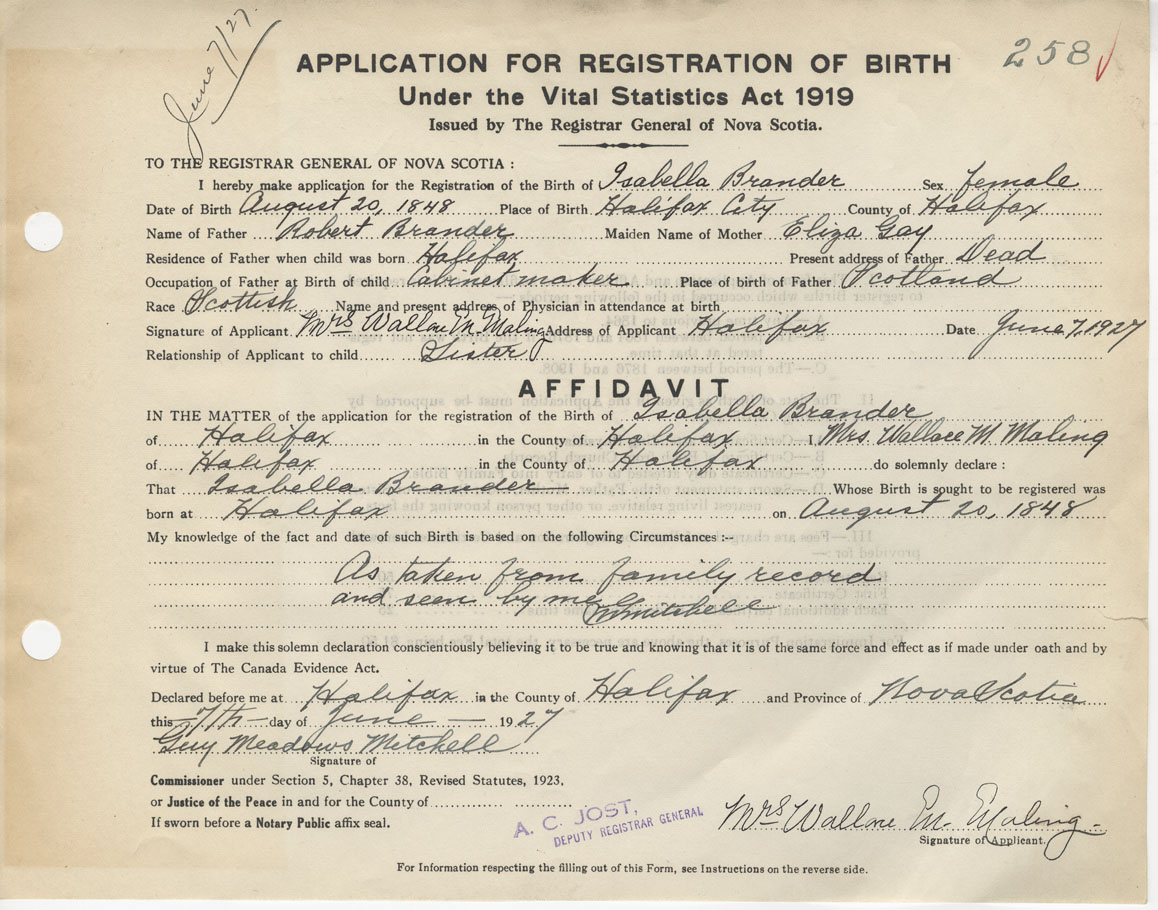 June 7/27.
258
APPLICATION FOR REGISTRATION OF BIRTH
Under the Vital Statistics Act 1919
Issued by The Registrar General of Nova Scotia.
TO THE REGISTRAR GENERAL OF NOVA SCOTIA :
I hereby make application for the Registration of the Birth of Isabella Brander Sex female
Date of Birth August 20, 1848 Place of Birth Halifax City County of Halifax
Name of Father Robert Brander Maiden Name of Mother Eliza Gay
Residence of Father when child was born Halifax Present address of Father Dead
Occupation of Father at Birth of child Cabinet maker Place of birth of Father Scotland
Race Scottish Name and present address of Physician in attendance at birth
Signature of Applicant Mrs Wallace M. Maling Address of Applicant Halifax Date June 7, 1927
Relationship of Applicant to child Sister
AFFIDAVIT
IN THE MATTER of the application for the registration of the Birth of Isabella Brander
of Halifax in the County of Halifax I, Mrs. Wallace M. Maling
of Halifax in the County of Halifax do solemnly declare :
That Isabella Brander Whose Birth is sought to be registered was
born at Halifax on August 20, 1848
My knowledge of the fact and date of such Birth is based on the following Circumstances :--
As taken from family record
and seen by me GMMitchell
I make this solemn declaration conscientiously believing it to be true and knowing that it is of the same force and effect as if made under oath and by
virtue of The Canada Evidence Act.
Declared before me at Halifax in the County of Halifax and Province of Nova Scotia
this 7th day of June 1927
Guy Meadows Mitchell
Signature of
Commissioner under Section 5, Chapter 38, Revised Statutes, 1923,
or Justice of the Peace in and for the County of
If sworn before a Notary Public affix seal.
A. C. JOST,
DEPUTY REGISTRAR GENERAL
Mrs Wallace M. Maling
Signature of Applicant.
For Information respecting the filling out of this Form, see Instructions on the reverse side.